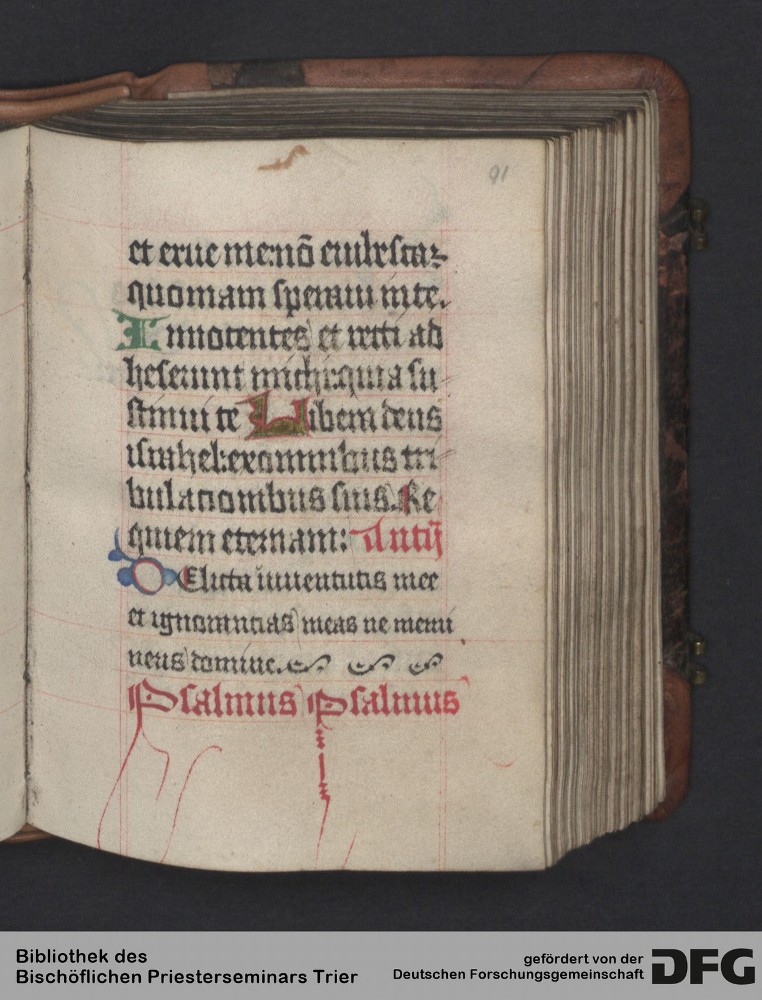 91
et erue me: nō erubescaz
quoniam speraui in te.
Innocentes et recti ad
heserunt michi: quia su
stinui te Libera deus
israhel: ex omnibus tri
bulacionibus suis. Re
quiem eternam: Antiꝭ
Delicta iuuentutis mee
et ignorancias meas ne memi
neris domine.
Psalmus Psalmus
Bibliothek des
Bischöflichen Priesterseminars Trier
gefördert von der
Deutschen Forschungsgemeinschaft
DFG